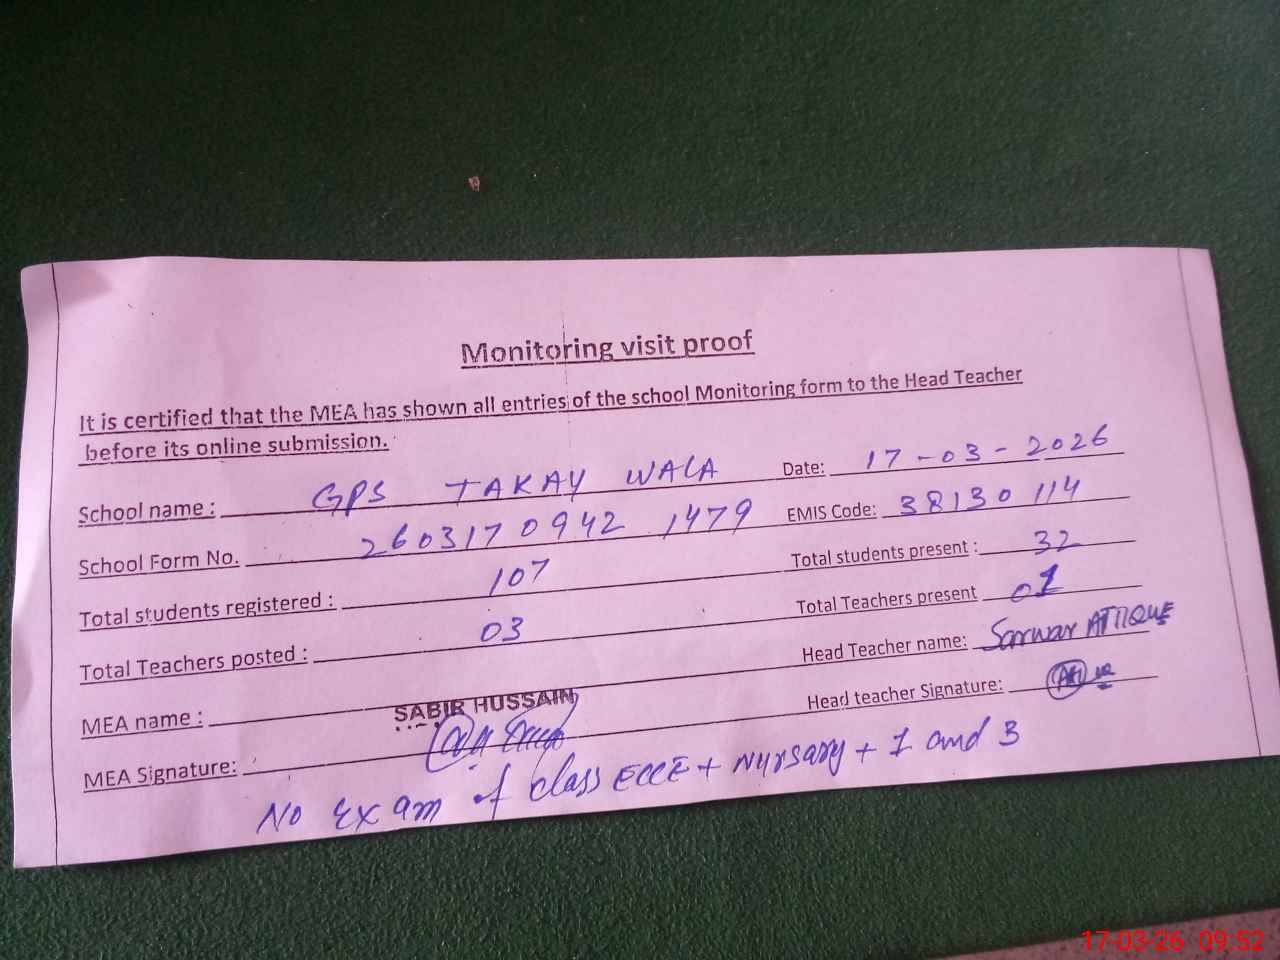 Monitoring visit proof
It is certified that the MEA has shown all entries of the school Monitoring form to the Head Teacher
before its online submission.
School name : GPS TAKAY WALA Date: 17-03-2026
School Form No. 260317 0942 1479 EMIS Code: 38130 114
Total students registered : 107 Total students present : 32
Total Teachers posted : 03 Total Teachers present 01
MEA name : SABIR HUSSAIN Head Teacher name: Sarwar ATTIQUE
MEA Signature: Head teacher Signature:
No Exam of class ECCE + Nursary + 1 and 3
17-03-26 09:52